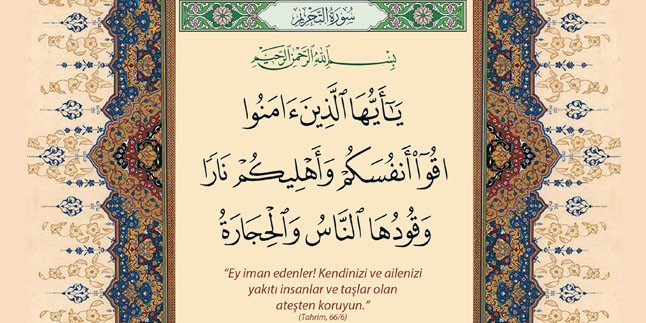 سُورَةُ التَّحْرِيمِ
بِسْمِ اللّٰهِ الرَّحْمٰنِ الرَّحِيمِ
يَٰٓأَيُّهَا ٱلَّذِينَ ءَامَنُوا
اقُوٓا۟ أَنفُسَكُمْ وَأَهْلِيكُمْ نَارًا
وَقُودُهَا ٱلنَّاسُ وَٱلْحِجَارَةُ
“Ey iman edenler! Kendinizi ve ailenizi
yakıtı insanlar ve taşlar olan
ateşten koruyun.”
(Tahrim, 66/6)